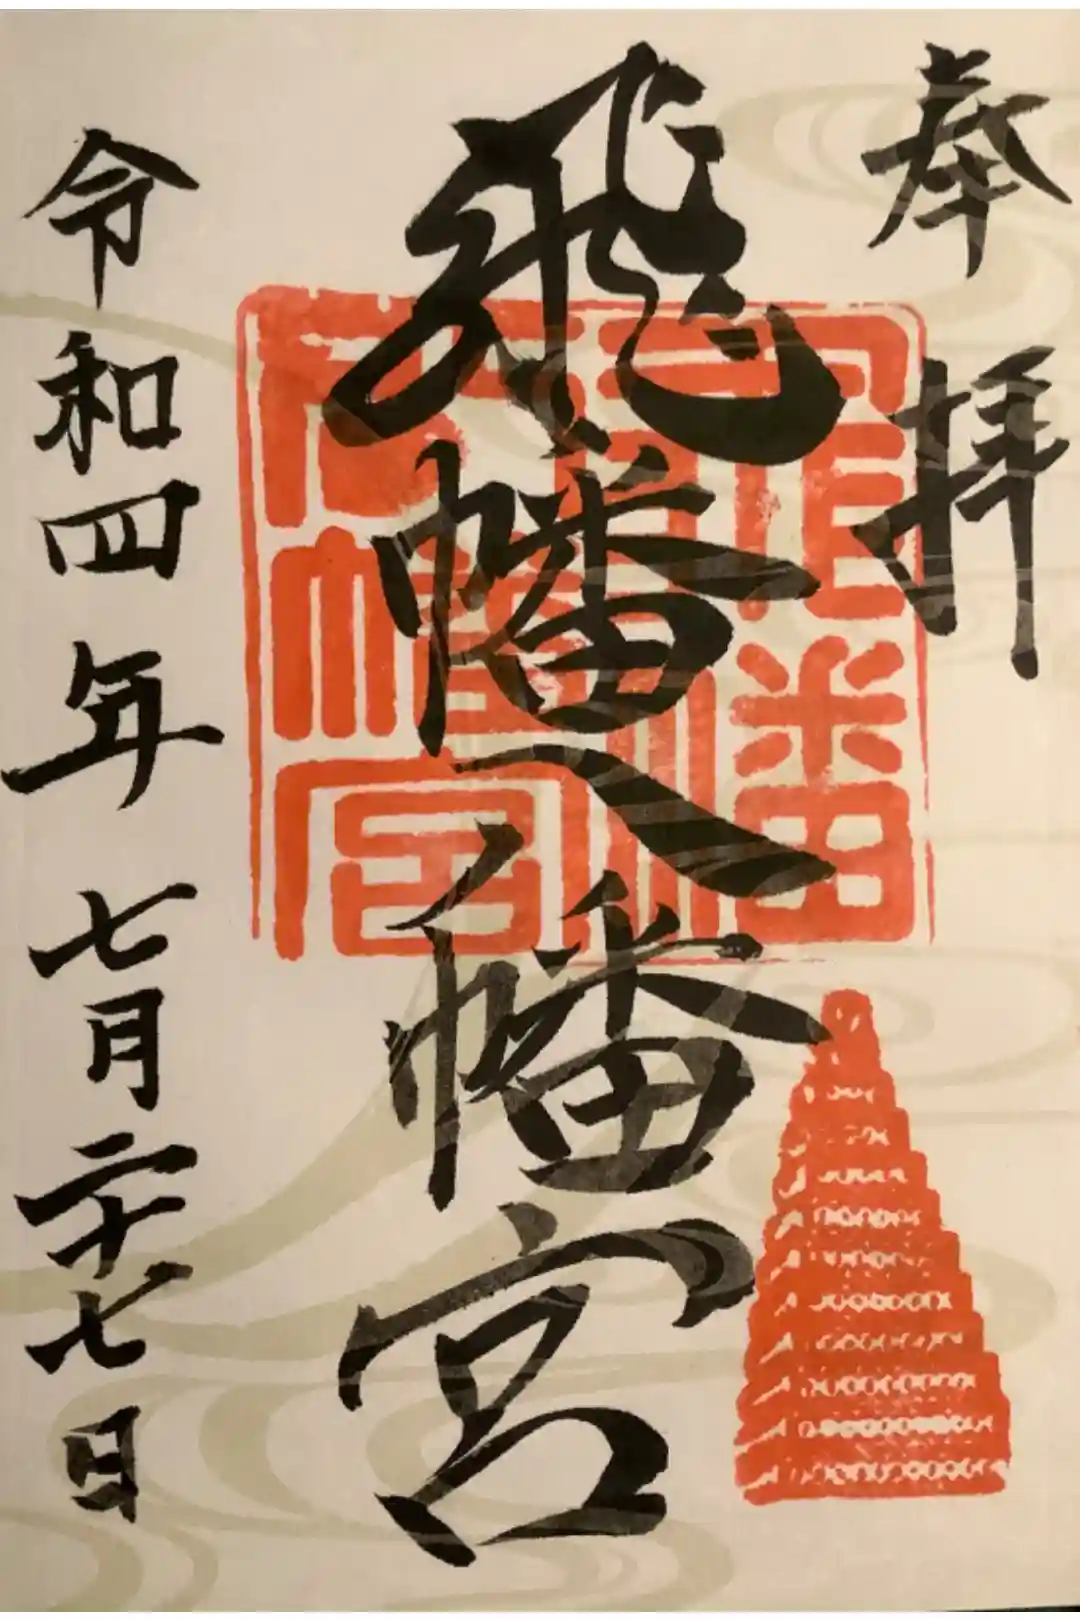 奉拝
飛幡八幡宮
令和四年 七月二十七日
幡
八幡宮